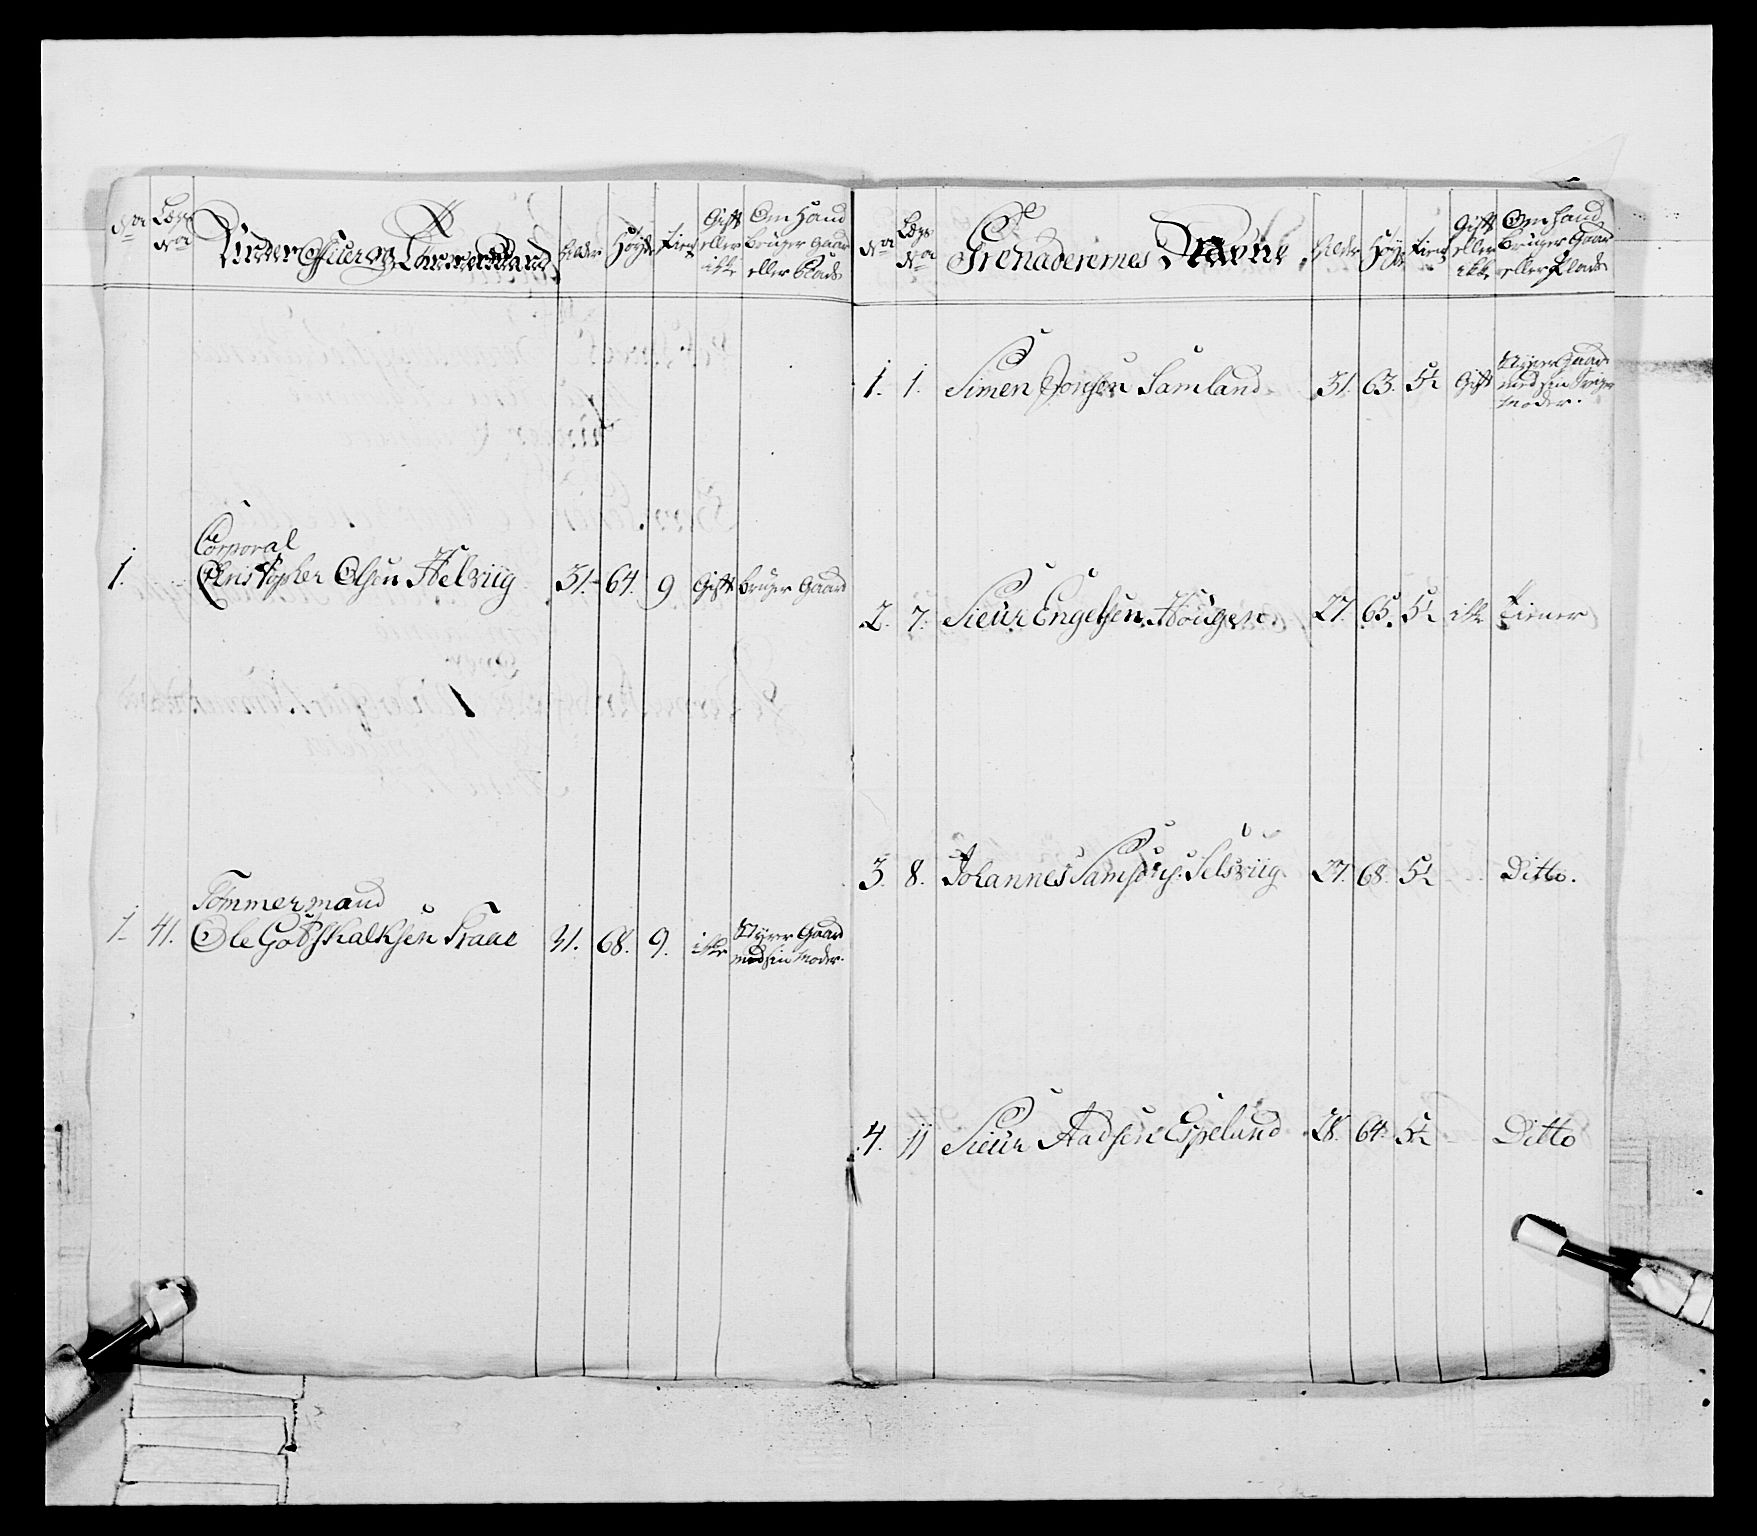 No
Lægs No
Under Officier og Tömmermænd
Alder
Høyde
Tient
Gift eller ikke
Om Hand bruger Gaard eller Plads
1.
Corporal
Christopher Olsen Helviig
31.
64.
9
Gift
bruger Gaard
1.
41.
Tömmermand
Ole Godskalksen Traae
31.
68.
9.
ikke
Styrer Gaard
med sin Moder.
No
Lægs No
Grenaderernes Navne
Alder
Høyde
Tient
Gift eller ikke
Om Hand bruger Gaard eller Plads
1.
1.
Simen Joensen Samland
31.
63.
5½
Gift
Styrer Gaard
med sin
Moder.
2.
7.
Sieur Engelsen Hougen
27.
65.
5½
ikke
Tiener
3.
8.
Johannes Samsons. Selsviig
27.
68.
5½
Ditto.
4.
11
Sieur Aadsen Espelund
28.
64.
5½
Ditto